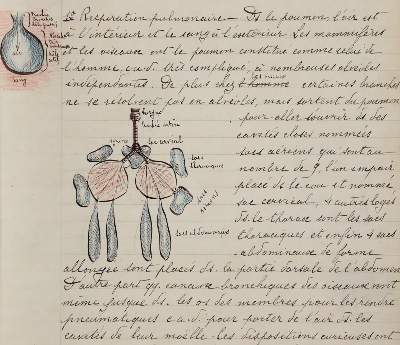 Respiration pulmonaire – Ds le poumon l'air est
à l'intérieur et le sang à l'extérieur. les mammifères
et les oiseaux ont le poumon constitué comme celui de
l'homme, c.a.d. très compliqué, à nombreuses alvéoles
indépendantes. De plus chez l'homme les oiseaux certaines branches
ne se résolvent pas en alvéoles, mais sortent du poumon
pour aller s'ouvrir ds des
cavités closes nommées
sacs aériens qui sont au
nombre de 9, l'un impair
placé ds le cou et nommé
sac cervical, 4 autres logés
ds. le thorax sont les sacs
thoraciques et enfin 4 sacs
abdominaux de forme
allongée sont placés ds. la partie dorsale de l'abdomen
D'autre part qq. canaux bronchiques des oiseaux vont
même jusque ds. les os des membres pour les rendre
pneumatiques c.a.d. pour porter de l'air ds. les
cavités de leur moëlle. les dispositions curieuses ont
sang
larynx
trachée artère
sac cervical
sacs
thoraciques
sacs
aériens
sacs abdominaux